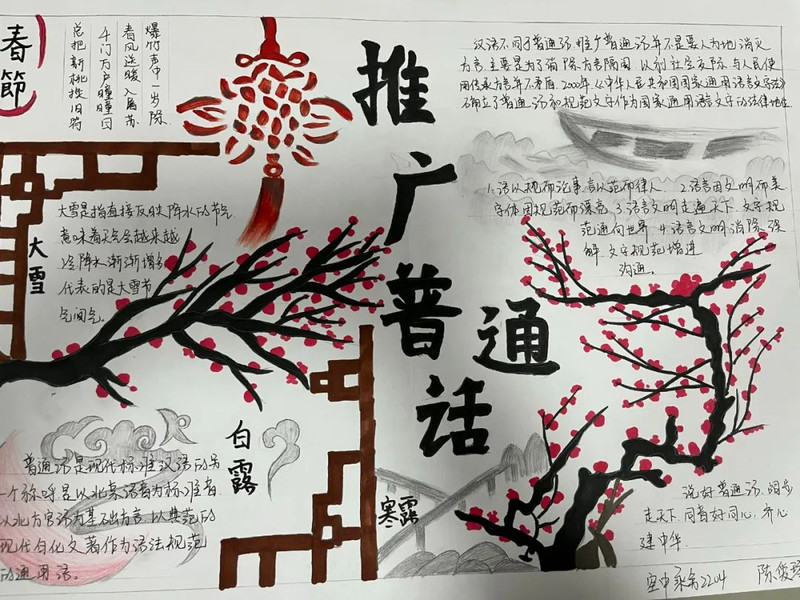 春節
爆竹声中一岁除
春风送暖入屠苏
千门万户曈曈日
总把新桃换旧符
推广普通话
汉语不同于普通话，推广普通话并不是要人为地消灭
方言，主要是为了消除方言隔阂，以利社会交际，与人民使
用传承方言并不矛盾。2000年，《中华人民共和国国家通用语言文字法》
确立了普通话和规范文字作为国家通用语言文字的法律地位
1.话以规而论事，言以范而律人 2.语言因文明而美
字体因规范而漂亮 3.语言文明走遍天下，文字规
范通向世界 4.语言文明消除误
解，文字规范增进
沟通。
大雪
大雪是指直接反映降水的节气
意味着天气会越来越
冷降水渐渐增多
代表的是大雪节
气间气。
白露
普通话是现代标准汉语的另
一个称呼是以北京语音为标准音
以北方官话为基础方言，以典范的
现代白化文著作为语法规范
的通用语。
寒露
说好普通话，阔步
走天下，同音好同心，齐心
建中华
2204